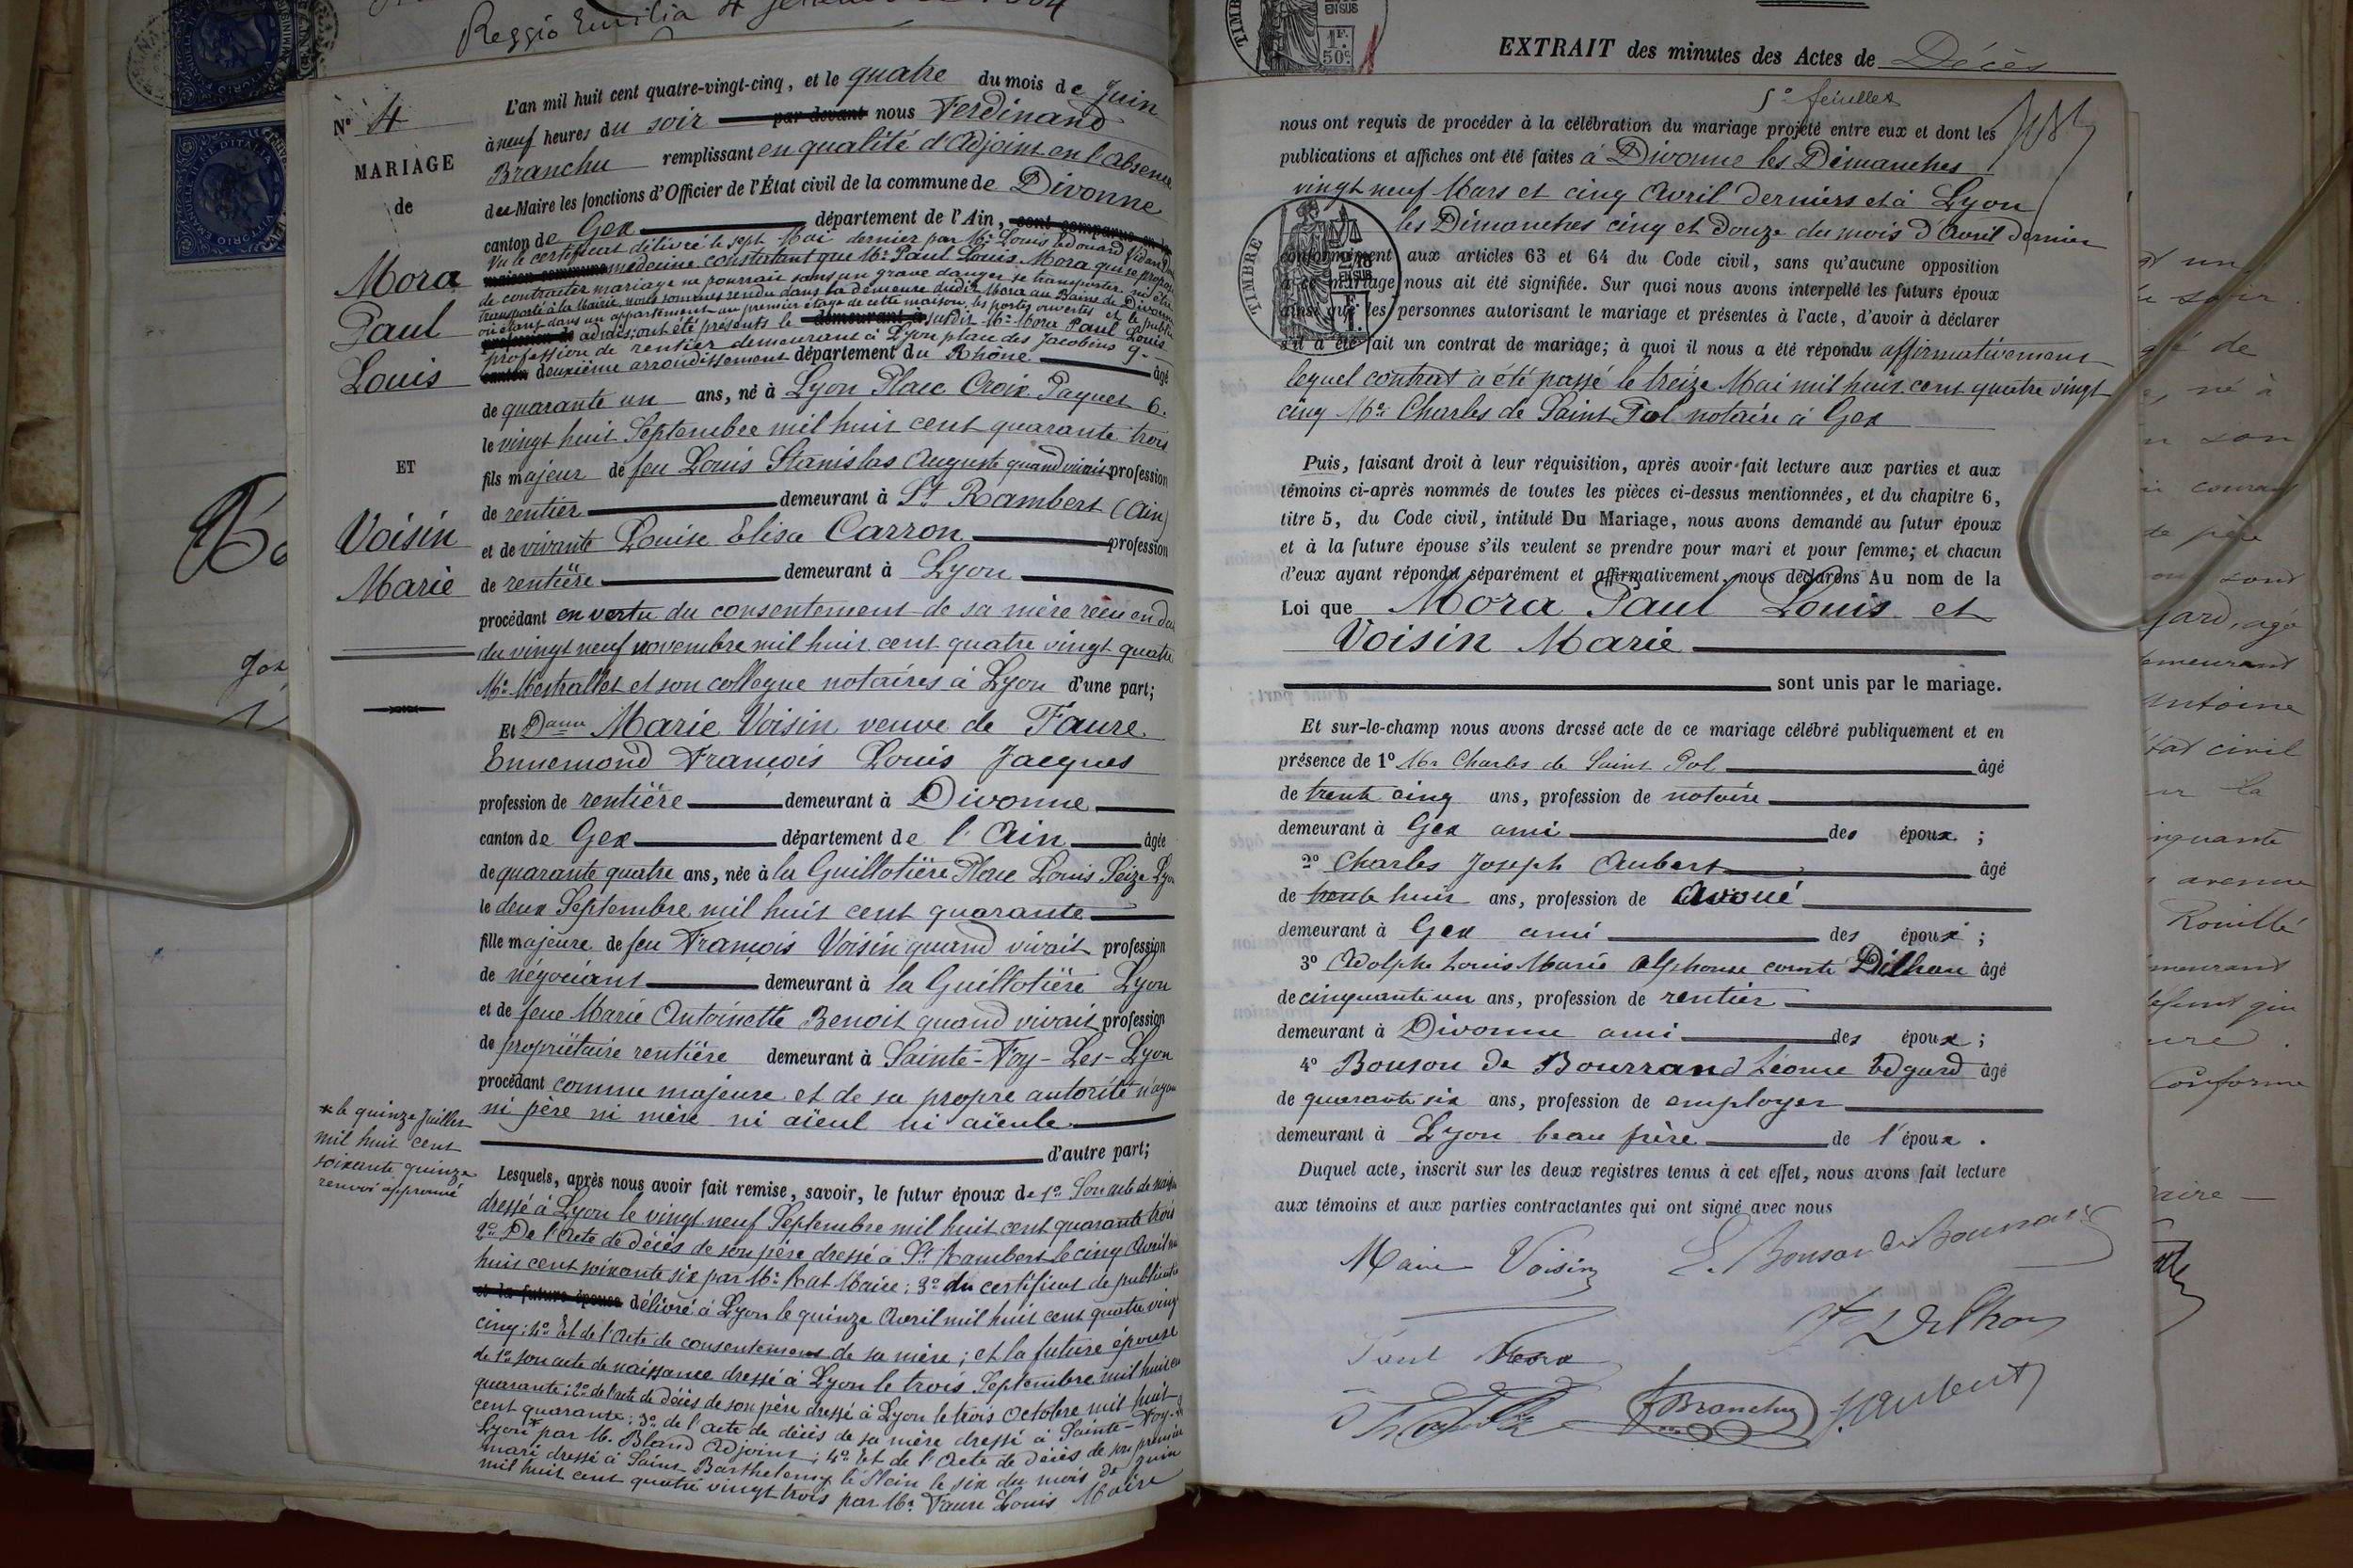 Reggio Emilia 4
N° 4
MARIAGE
de
Mora
Paul
Louis
ET
Voisin
Marie
L'an mil huit cent quatre-vingt-cinq, et le quatre du mois de Juin
à neuf heures du soir par devant nous Ferdinand
Branchu remplissant en qualité d'Adjoint en l'absence
du Maire les fonctions d'Officier de l'État civil de la commune de Divonne
canton de Gex département de l'Ain, sont comparus en la
Vu le certificat délivré le sept Mai dernier par Mr Louis Edouard
maison commune médecine constatant que Mr Paul Louis Mora qui se propose
de contracter mariage ne pourrait sans un grave danger se transporter ni être
transporté à la Mairie, nous sommes rendu dans la demeure dudit Mora au Bains de Divonne
où étant dans un appartement au premier étage de cette maison, les portes ouvertes et le public
admis, ont été présents le demeurant à susdit Mr Mora Paul Louis
profession de rentier demeurant à Lyon place des Jacobins 9
canton deuxième arrondissement département du Rhône âgé
de quarante un ans, né à Lyon Place Croix Paquet 6.
le vingt huit Septembre mil huit cent quarante trois
fils majeur de feu Louis Stanislas Auguste quand vivait profession
de rentier demeurant à St Rambert (Ain)
et de vivante Louise Elisa Carron profession
de rentière demeurant à Lyon
procédant en vertu du consentement de sa mère reçu en date
du vingt neuf novembre mil huit cent quatre vingt quatre
Mr Mestrallet et son collegue notaires à Lyon d'une part;
Et Dame Marie Voisin veuve de Faure
Ennemond François Louis Jacques
profession de rentière demeurant à Divonne
canton de Gex département de l'Ain âgée
de quarante quatre ans, née à la Guillotière Place Louis Seize Lyon
le deux Septembre mil huit cent quarante
fille majeure de feu François Voisin quand vivait profession
de négociant demeurant à la Guillotière Lyon
et de feue Marie Antoinette Benoit quand vivait profession
de propriétaire rentière demeurant à Sainte-Foy-Les-Lyon
procédant comme majeure et de sa propre autorité n'ayant
ni père ni mère ni aïeul ni aïeule
d'autre part;
* le quinze Juillet
mil huit cent
soixante quinze
renvoi approuvé
Lesquels, après nous avoir fait remise, savoir, le futur époux de 1° Son acte de naissance
dressé à Lyon le vingt neuf Septembre mil huit cent quarante trois
2° De l'acte de décès de son père dressé à St Rambert le cinq Avril mil
huit cent soixante six par Mr Rat Maire; 3° du certificat de publication
et la future épouse délivré à Lyon le quinze Avril mil huit cent quatre vingt
cinq; 4° Et de l'acte de consentement de sa mère; et la future épouse
de 1° son acte de naissance dressé à Lyon le trois Septembre mil huit cent
quarante; 2° de l'acte de décès de son père dressé à Lyon le trois Octobre mil huit
cent quarante; 3° de l'acte de décès de sa mère dressé à Sainte-Foy-lès
Lyon* par M. Bland Adjoint; 4° Et de l'Acte de Décès de son premier
mari dressé à Saint Barthélemy le Plein le six du mois de Juin
mil huit cent quatre vingt trois par Mr Faure Louis Maire
TIMBRE
1F. 50c.
EN SUS
EXTRAIT des minutes des Actes de Décès
5e feuillet
nous ont requis de procéder à la célébration du mariage projeté entre eux et dont les
publications et affiches ont été faites à Divonne les Dimanches
vingt neuf Mars et cinq Avril derniers et à Lyon
les Dimanches cinq et douze du mois d'Avril dernier
conformément aux articles 63 et 64 du Code civil, sans qu'aucune opposition
à ce mariage nous ait été signifiée. Sur quoi nous avons interpellé les futurs époux
ainsi que les personnes autorisant le mariage et présentes à l'acte, d'avoir à déclarer
s'il a été fait un contrat de mariage; à quoi il nous a été répondu affirmativement
lequel contrat a été passé le treize Mai mil huit cent quatre vingt
cinq Mr Charles de Saint Pol notaire à Gex
TIMBRE
EN SUS
Puis, faisant droit à leur réquisition, après avoir fait lecture aux parties et aux
témoins ci-après nommés de toutes les pièces ci-dessus mentionnées, et du chapitre 6,
titre 5, du Code civil, intitulé Du Mariage, nous avons demandé au futur époux
et à la future épouse s'ils veulent se prendre pour mari et pour femme; et chacun
d'eux ayant répondu séparément et affirmativement, nous déclarons Au nom de la
Loi que Mora Paul Louis et
Voisin Marie
sont unis par le mariage.
Et sur-le-champ nous avons dressé acte de ce mariage célébré publiquement et en
présence de 1° Mr Charles de Saint Pol âgé
de trente cinq ans, profession de notaire
demeurant à Gex ami des époux ;
2° Charles Joseph Aubert âgé
de trente huit ans, profession de Avoué
demeurant à Gex ami des époux ;
3° Adolphe Louis Marie Alphonse comte Dilhan âgé
de cinquante un ans, profession de rentier
demeurant à Divonne ami des époux ;
4° Bonson de Bourrand Léonce Edgard âgé
de quarante six ans, profession de employer
demeurant à Lyon beau frère de l'époux .
Duquel acte, inscrit sur les deux registres tenus à cet effet, nous avons fait lecture
aux témoins et aux parties contractantes qui ont signé avec nous
Marie Voisin
Paul Mora
F Branchu
Aubert
de
né à
son
courant
de père
gard, agé
demeurant
Antoine
état civil
la
cinquante
avenue
Rouillé
conforme